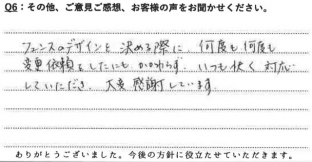 Q6：その他、ご意見ご感想、お客様の声をお聞かせください。
フェンスのデザインを決める際に、何度も何度も
変更依頼をしたにも かかわらず いつも快く対応
していただき、大変感謝しています。
ありがとうございました。今後の方針に役立たせていただきます。